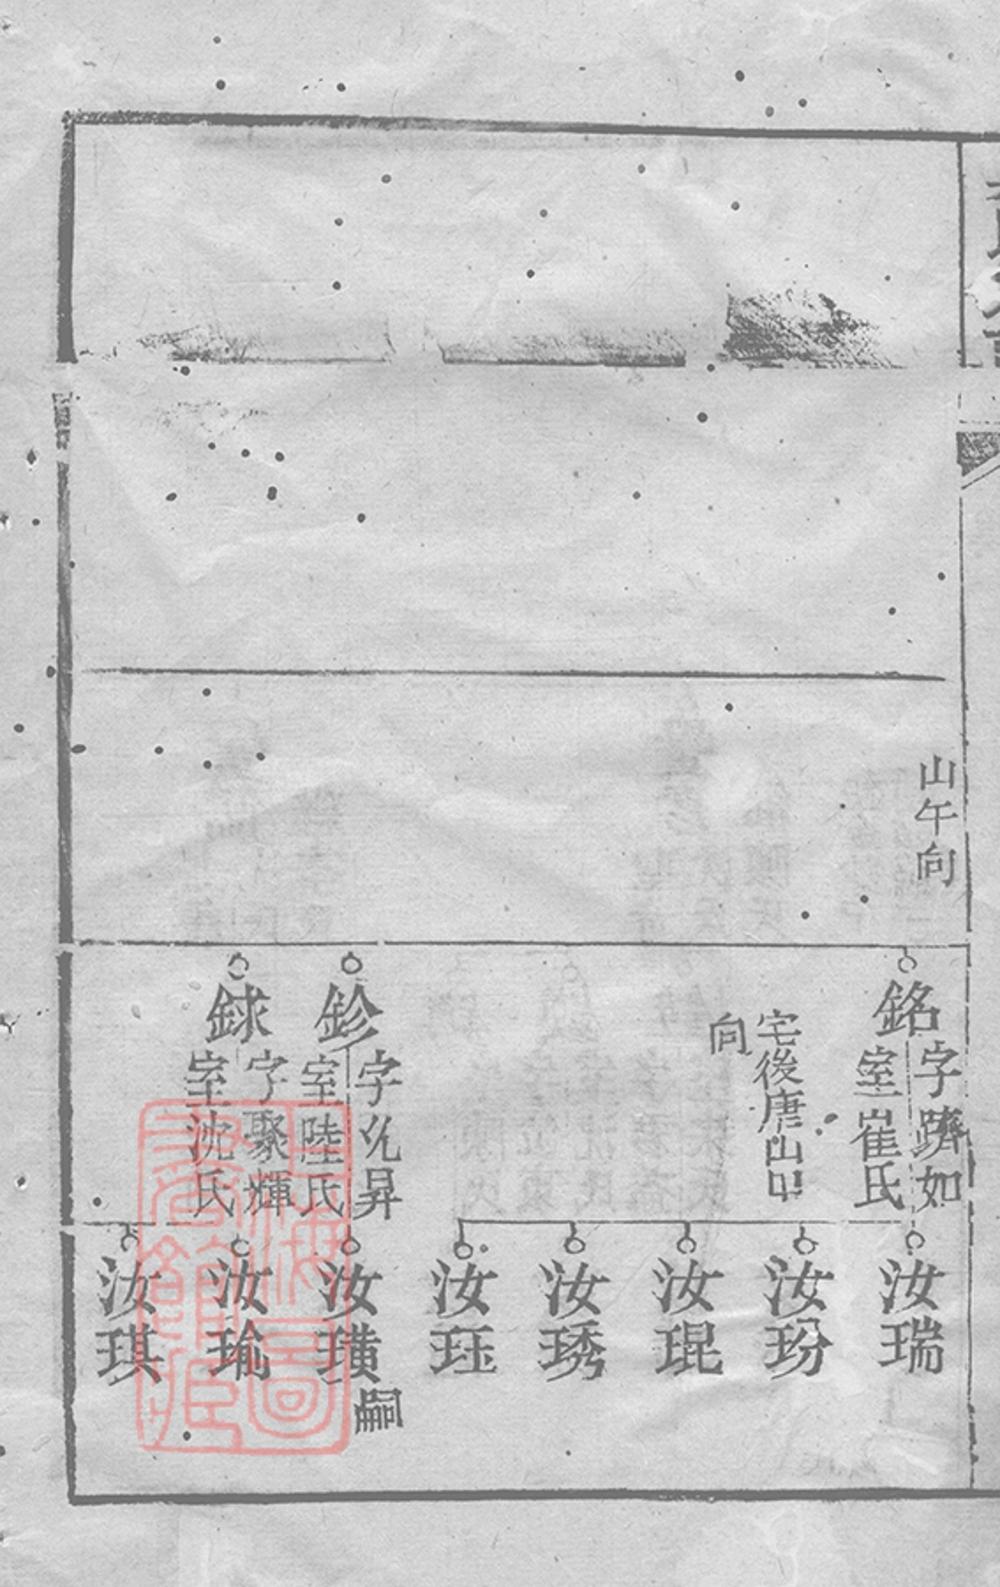 山午向
銘
字躋如
室崔氏
宅後唐山甲
向
鉁
字允昇
室陸氏
銶
字聚輝
室沈氏
汝瑞
汝玢
汝琨
汝琇
汝珏
汝璜
嗣
汝瑜
汝琪
上海圖書館藏